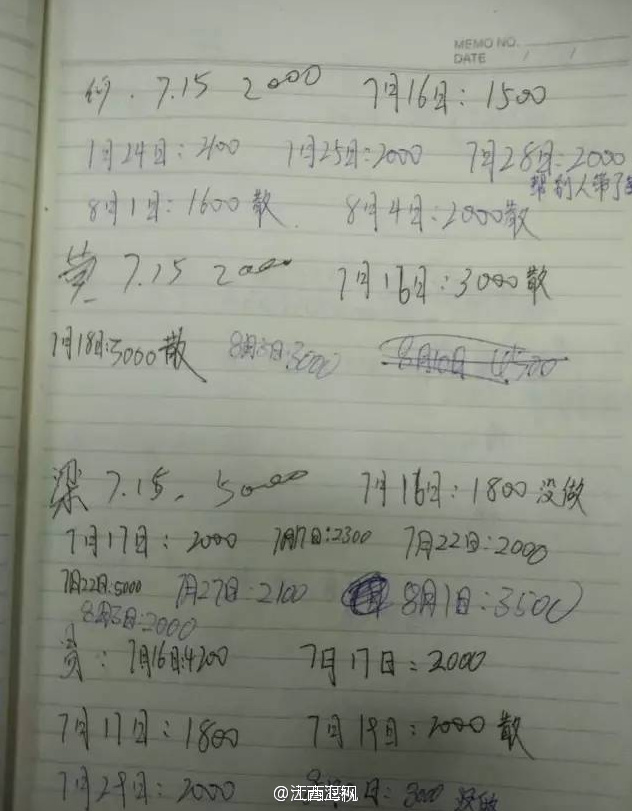 MEMO NO.
DATE / /
7.15 2000 7月16日:1500
7月24日:2100 7月25日:2000 7月28日:2000
帮别人带了
8月1日:1600散 8月4日:2000散
黄 7.15 2000 7月16日:3000散
7月18日:3000散 8月3日:3000 8月10日
梁 7.15. 5000 7月16日:1800没做
7月17日:2000 7月17日:2300 7月22日:2000
7月22日:5000 7月27日:2100 8月1日:3500
8月3日:2000
7月16日:4200 7月17日:2000
7月17日:1800 7月19日:2000散
7月29日:2000 3000没做
@江西逗视